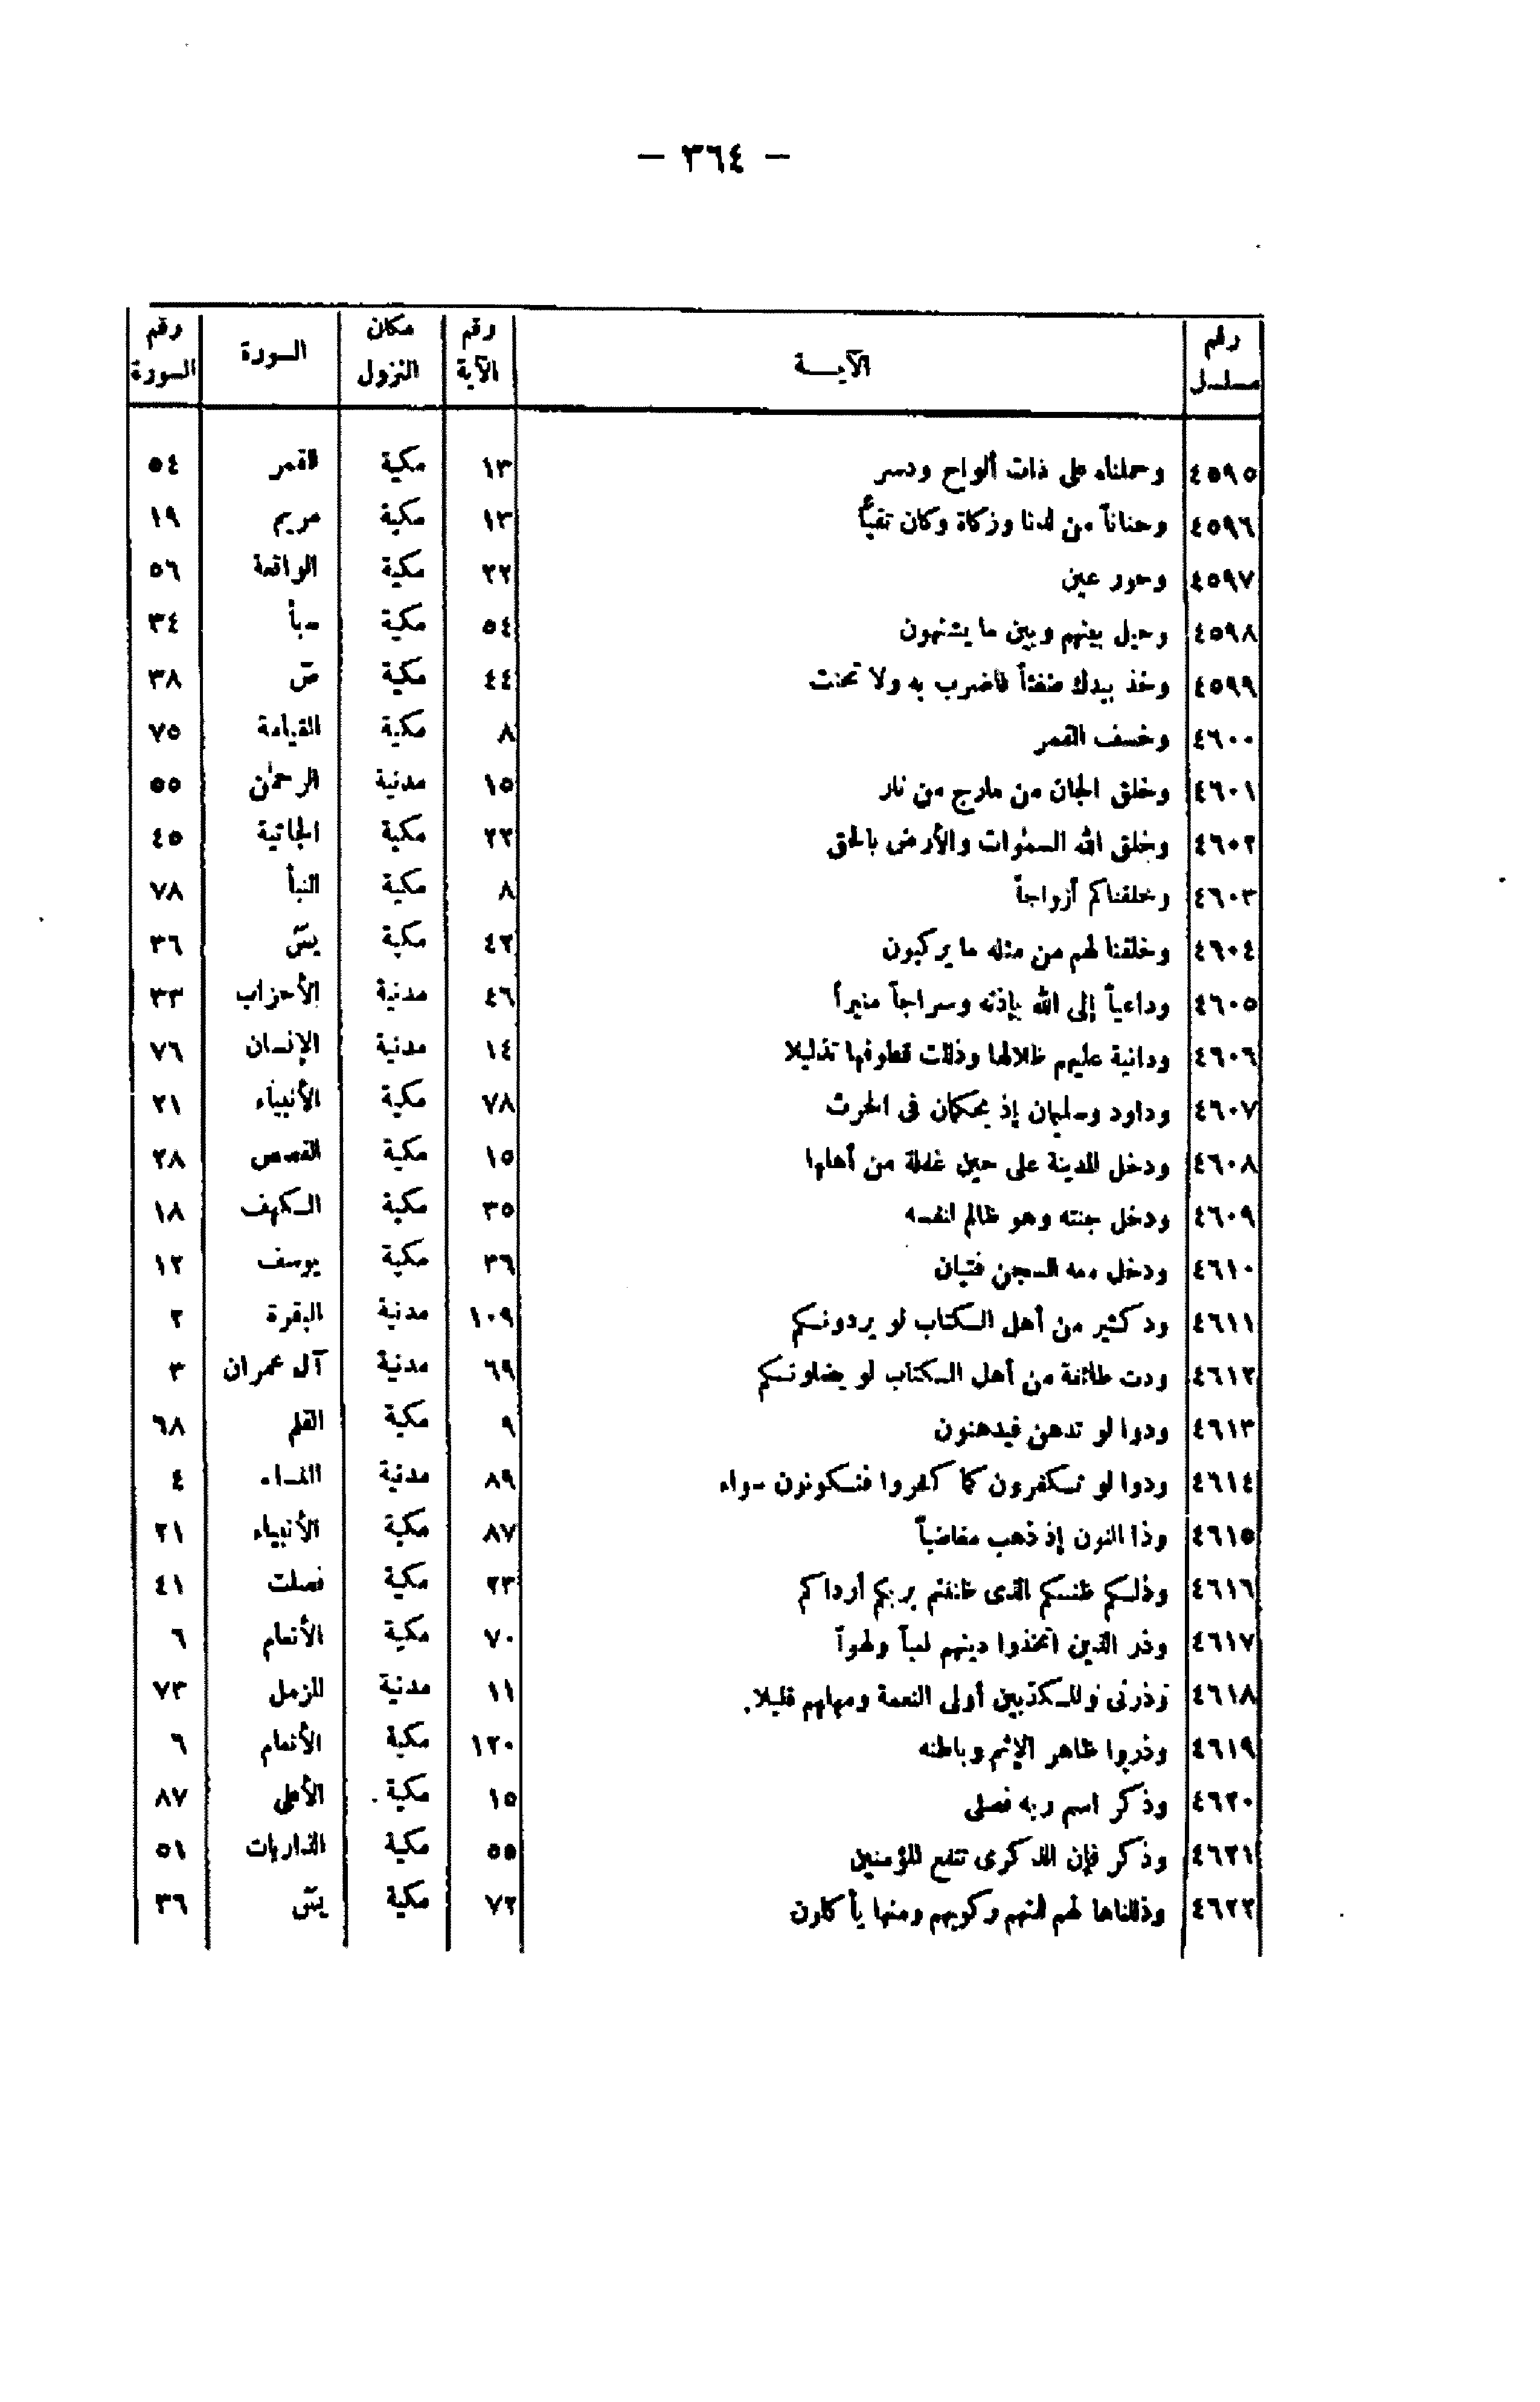 — ٣٦٤ —
رقم مسلسل | الآيـــة | رقم الآية | مكان النزول | السورة | رقم السورة
٤٥٩٥ | وحملناه على ذات ألواح ودسر | ١٣ | مكية | القمر | ٥٤
٤٥٩٦ | وحناناً من لدنا وزكاة وكان تقيًّا | ١٣ | مكية | مريم | ١٩
٤٥٩٧ | وحور عين | ٢٢ | مكية | الواقعة | ٥٦
٤٥٩٨ | وحيل بينهم وبين ما يشتهون | ٥٤ | مكية | سبأ | ٣٤
٤٥٩٩ | وخذ بيدك ضغثاً فاضرب به ولا تحنث | ٤٤ | مكية | صٓ | ٣٨
٤٦٠٠ | وخسف القمر | ٨ | مكية | القيامة | ٧٥
٤٦٠١ | وخلق الجان من مارج من نار | ١٥ | مدنية | الرحمٰن | ٥٥
٤٦٠٢ | وخلق الله السمٰوات والأرض بالحق | ٢٢ | مكية | الجاثية | ٤٥
٤٦٠٣ | وخلقناكم أزواجاً | ٨ | مكية | النبأ | ٧٨
٤٦٠٤ | وخلقنا لهم من مثله ما يركبون | ٤٢ | مكية | يسٓ | ٣٦
٤٦٠٥ | وداعياً إلى الله بإذنه وسراجاً منيراً | ٤٦ | مدنية | الأحزاب | ٣٣
٤٦٠٦ | ودانية عليهم ظلالها وذللت قطوفها تذليلا | ١٤ | مدنية | الإنسان | ٧٦
٤٦٠٧ | وداود وسليمان إذ يحكمان فى الحرث | ٧٨ | مكية | الأنبياء | ٢١
٤٦٠٨ | ودخل المدينة على حين غفلة من أهلها | ١٥ | مكية | القصص | ٢٨
٤٦٠٩ | ودخل جنته وهو ظالم لنفسه | ٣٥ | مكية | الكهف | ١٨
٤٦١٠ | ودخل معه السجن فتيان | ٣٦ | مكية | يوسف | ١٢
٤٦١١ | ود كثير من أهل الكتاب لو يردونكم | ١٠٩ | مدنية | البقرة | ٢
٤٦١٢ | ودت طائفة من أهل الكتاب لو يضلونكم | ٦٩ | مدنية | آل عمران | ٣
٤٦١٣ | ودوا لو تدهن فيدهنون | ٩ | مكية | القلم | ٦٨
٤٦١٤ | ودوا لو تكفرون كما كفروا فتكونون سواء | ٨٩ | مدنية | النساء | ٤
٤٦١٥ | وذا النون إذ ذهب مغاضباً | ٨٧ | مكية | الأنبياء | ٢١
٤٦١٦ | وذلكم ظنكم الذى ظننتم بربكم أرداكم | ٢٣ | مكية | فصلت | ٤١
٤٦١٧ | وذر الذين اتخذوا دينهم لعباً ولهواً | ٧٠ | مكية | الأنعام | ٦
٤٦١٨ | وذرنى والمكذبين أولى النعمة ومهلهم قليلا. | ١١ | مدنية | المزمل | ٧٣
٤٦١٩ | وذروا ظاهر الإثم وباطنه | ١٢٠ | مكية | الأنعام | ٦
٤٦٢٠ | وذكر اسم ربه فصلى | ١٥ | مكية | الأعلى | ٨٧
٤٦٢١ | وذكر فإن الذكرى تنفع المؤمنين | ٥٥ | مكية | الذاريات | ٥١
٤٦٢٢ | وذللناها لهم فمنهم ركوبهم ومنها يأكلون | ٧٢ | مكية | يسٓ | ٣٦